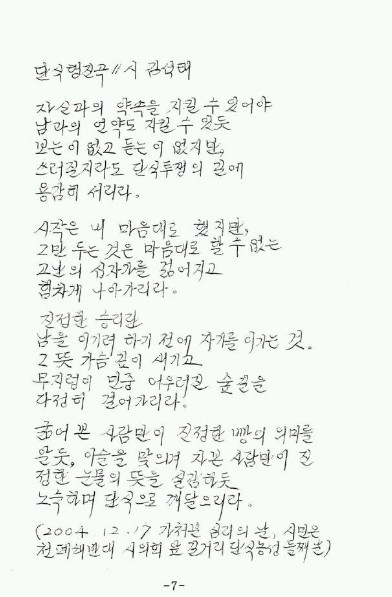 단식행진곡 // 시 김석태
자신과의 약속을 지킬 수 있어야
남과의 언약도 지킬 수 있듯
보는 이 없고 듣는 이 없지만,
쓰러질지라도 단식투쟁의 길에
용감히 서리라.
시작은 내 마음대로 했지만,
그만 두는 것은 마음대로 할 수 없는
고난의 십자가를 짊어지고
힘차게 나아가리라.
진정한 승리란
남을 이기려 하기 전에 자기를 이기는 것.
그 뜻 가슴 깊이 새기고
무지렁이 민중 어우러진 숲길을
다정히 걸어가리라.
굶어 본 사람만이 진정한 빵의 의미를
알듯, 이슬을 맞으며 자본 사람만이 진
정한 눈물의 뜻을 실감하듯
노숙하며 단식으로 깨달으리라.
(2004. 12. 17 가처분 심리의 날, 시민은
천 폐쇄반대 시의회 앞 길거리 단식농성 둘째날)
-7-